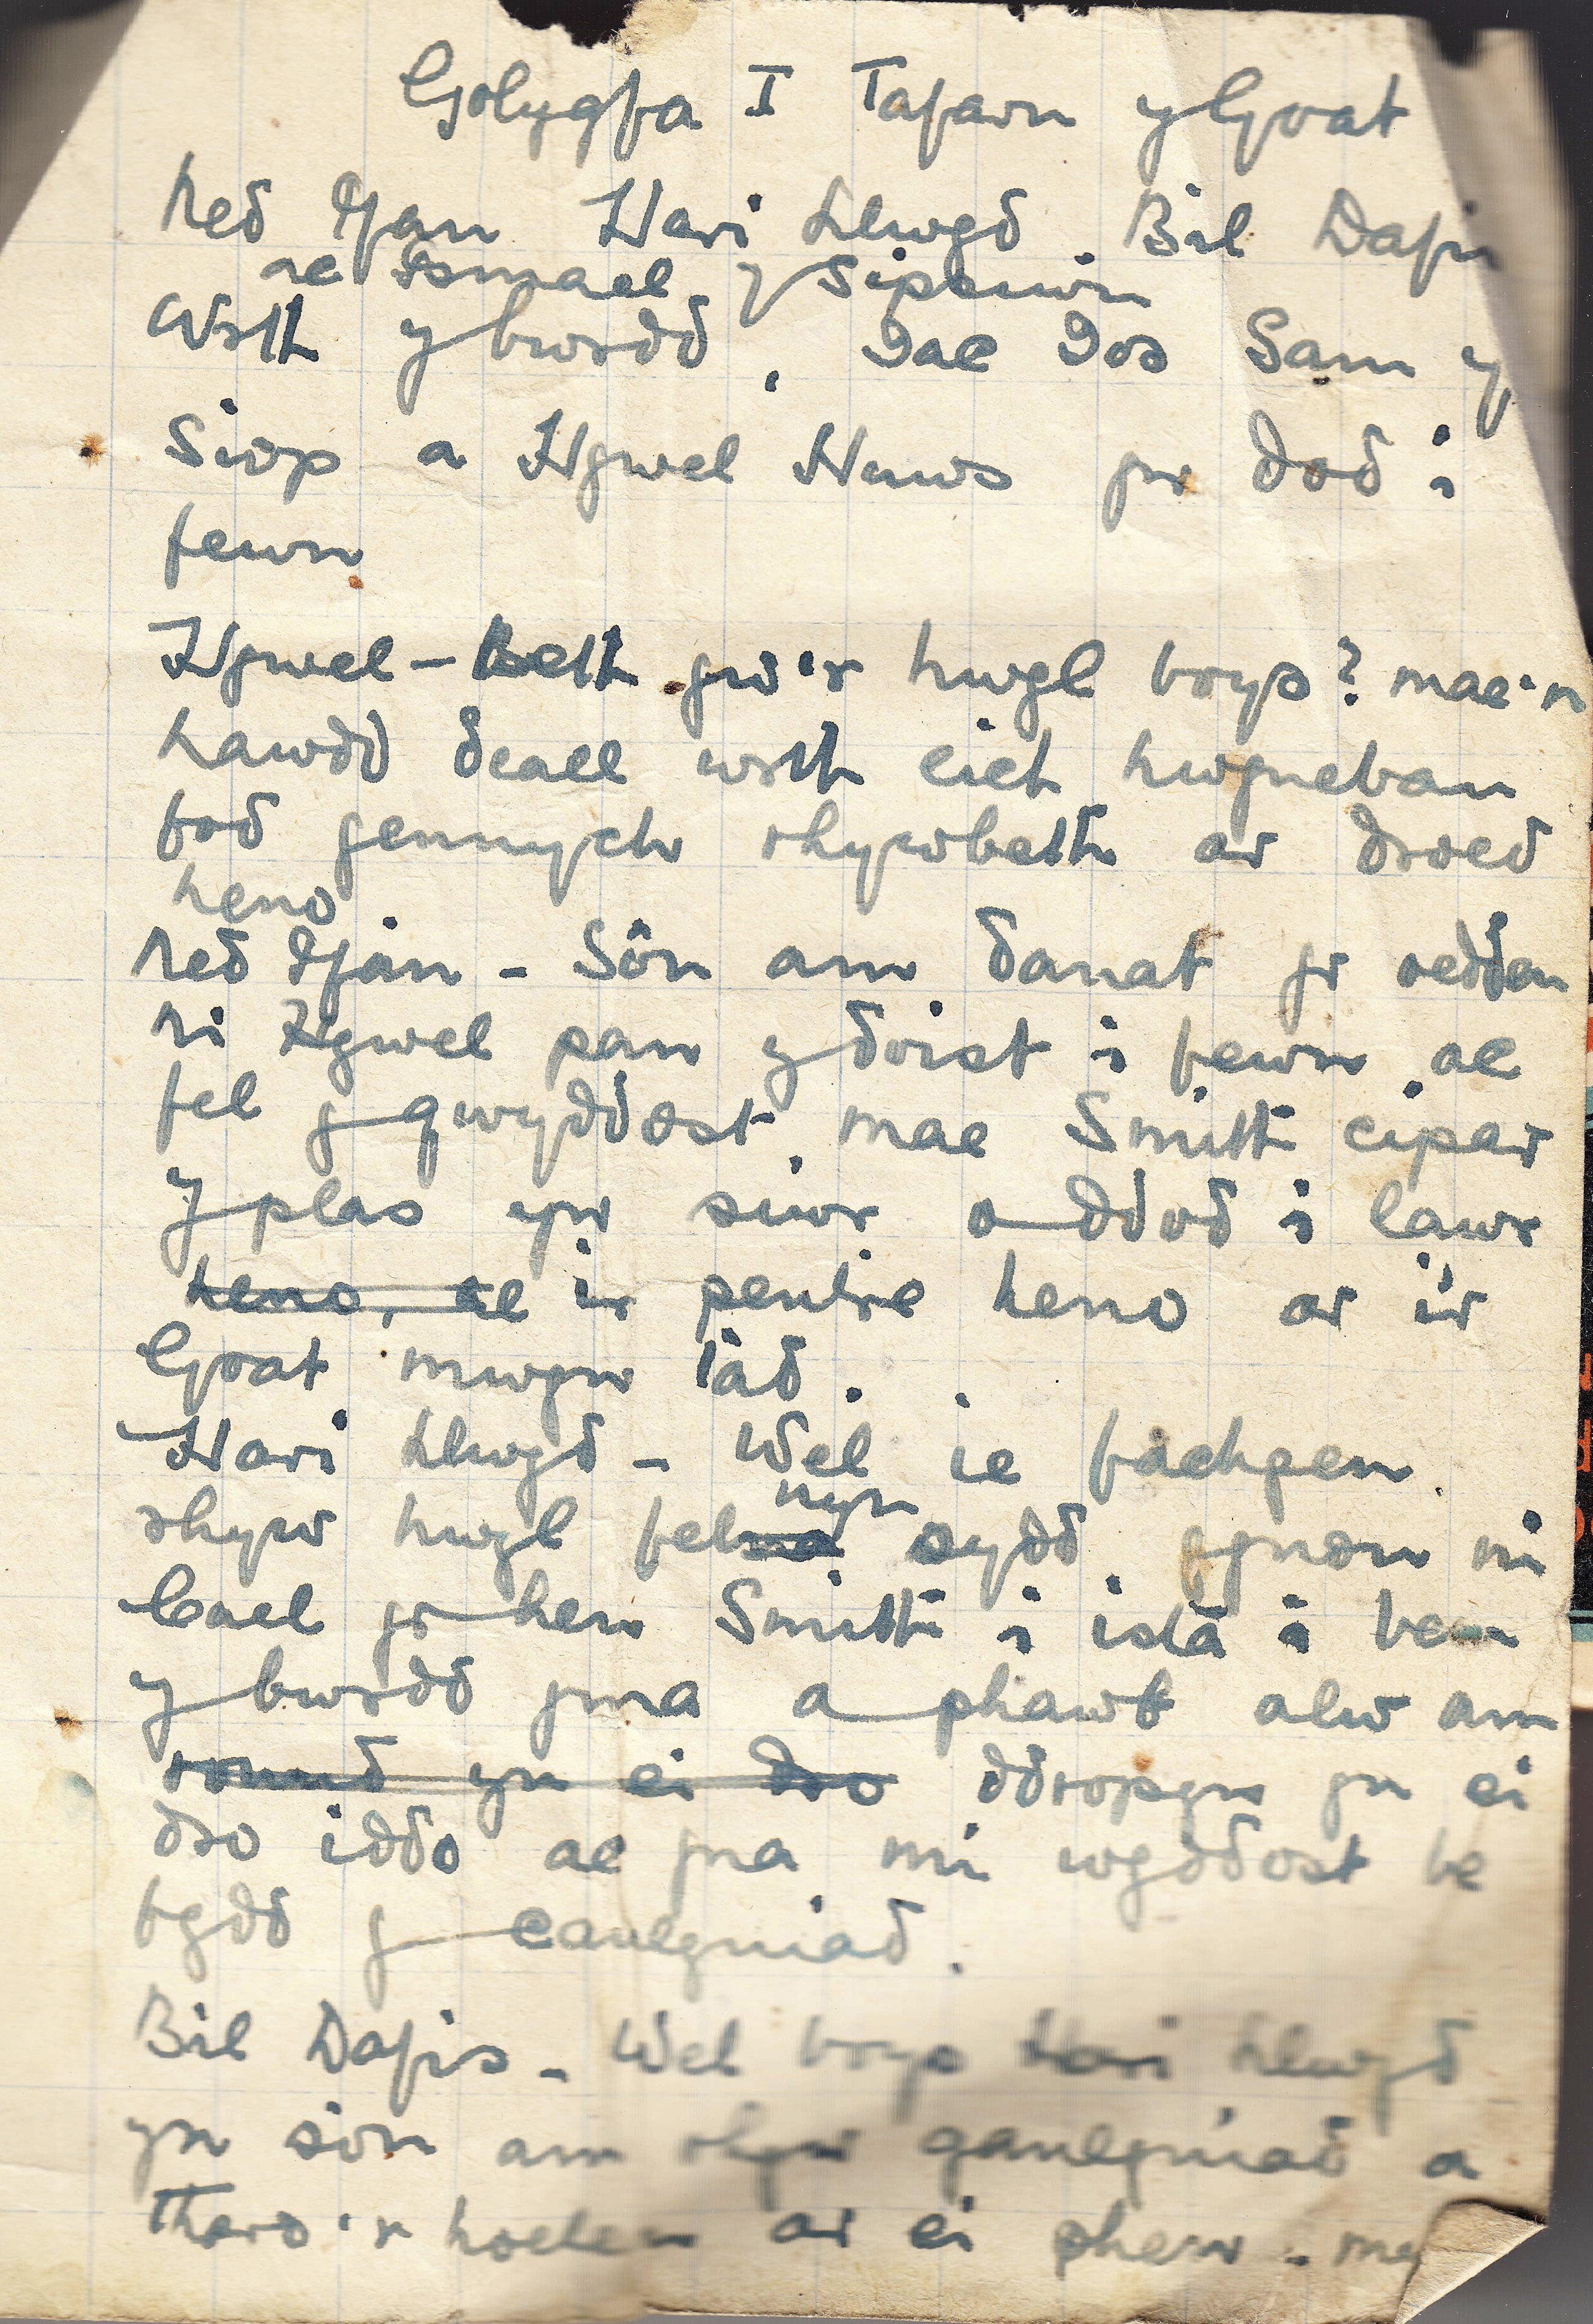 Golygfa I Tafarn y Goat
Ned Ifan Hari Llwyd. Bil Dafis
ac Ismael y Sipsiwn
Wrth y bwrdd, Dae Dos Sam y
Siop a Hywel Huws yn dod i
fewn
Hywel – Beth yw'r hwyl boys? mae'n
hawdd deall wrth eich hwyneban
fod gennych rhywbeth ar droed
heno
Ned Ifan – Sôn am danat yr oeddan
ni Hywel pan y doist i fewn ac
fel y gwyddost, mae Smith cipar
y plas yn siwr o ddod i lawr
heno, ac i'r pentre heno ac i'r
Goat mwyn tad.
Hari Llwyd – Wel ie fachgen.
nyn
rhyw hwyl felna sydd gynon ni
Cael yr hen Smith i ista i ben
y bwrdd yma a phawb alw am
round yn ei dro ddropyn yn ei
dro iddo ac yna mi wyddost be
fydd y canlyniad.
Bil Dafis – Wel boys Hari Llwyd
yn sôn am rhyw ganlyniad a
tharo'r hoelen ar ei phen.